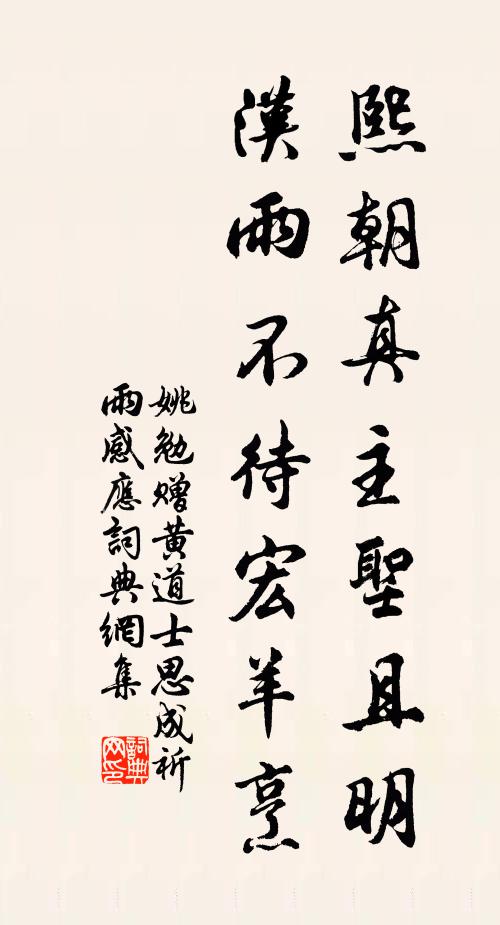 熙朝真主聖且明
漢雨不待宏羊烹
姚勉贈黄道士思成祈
雨感應詞典網集
詞典网印